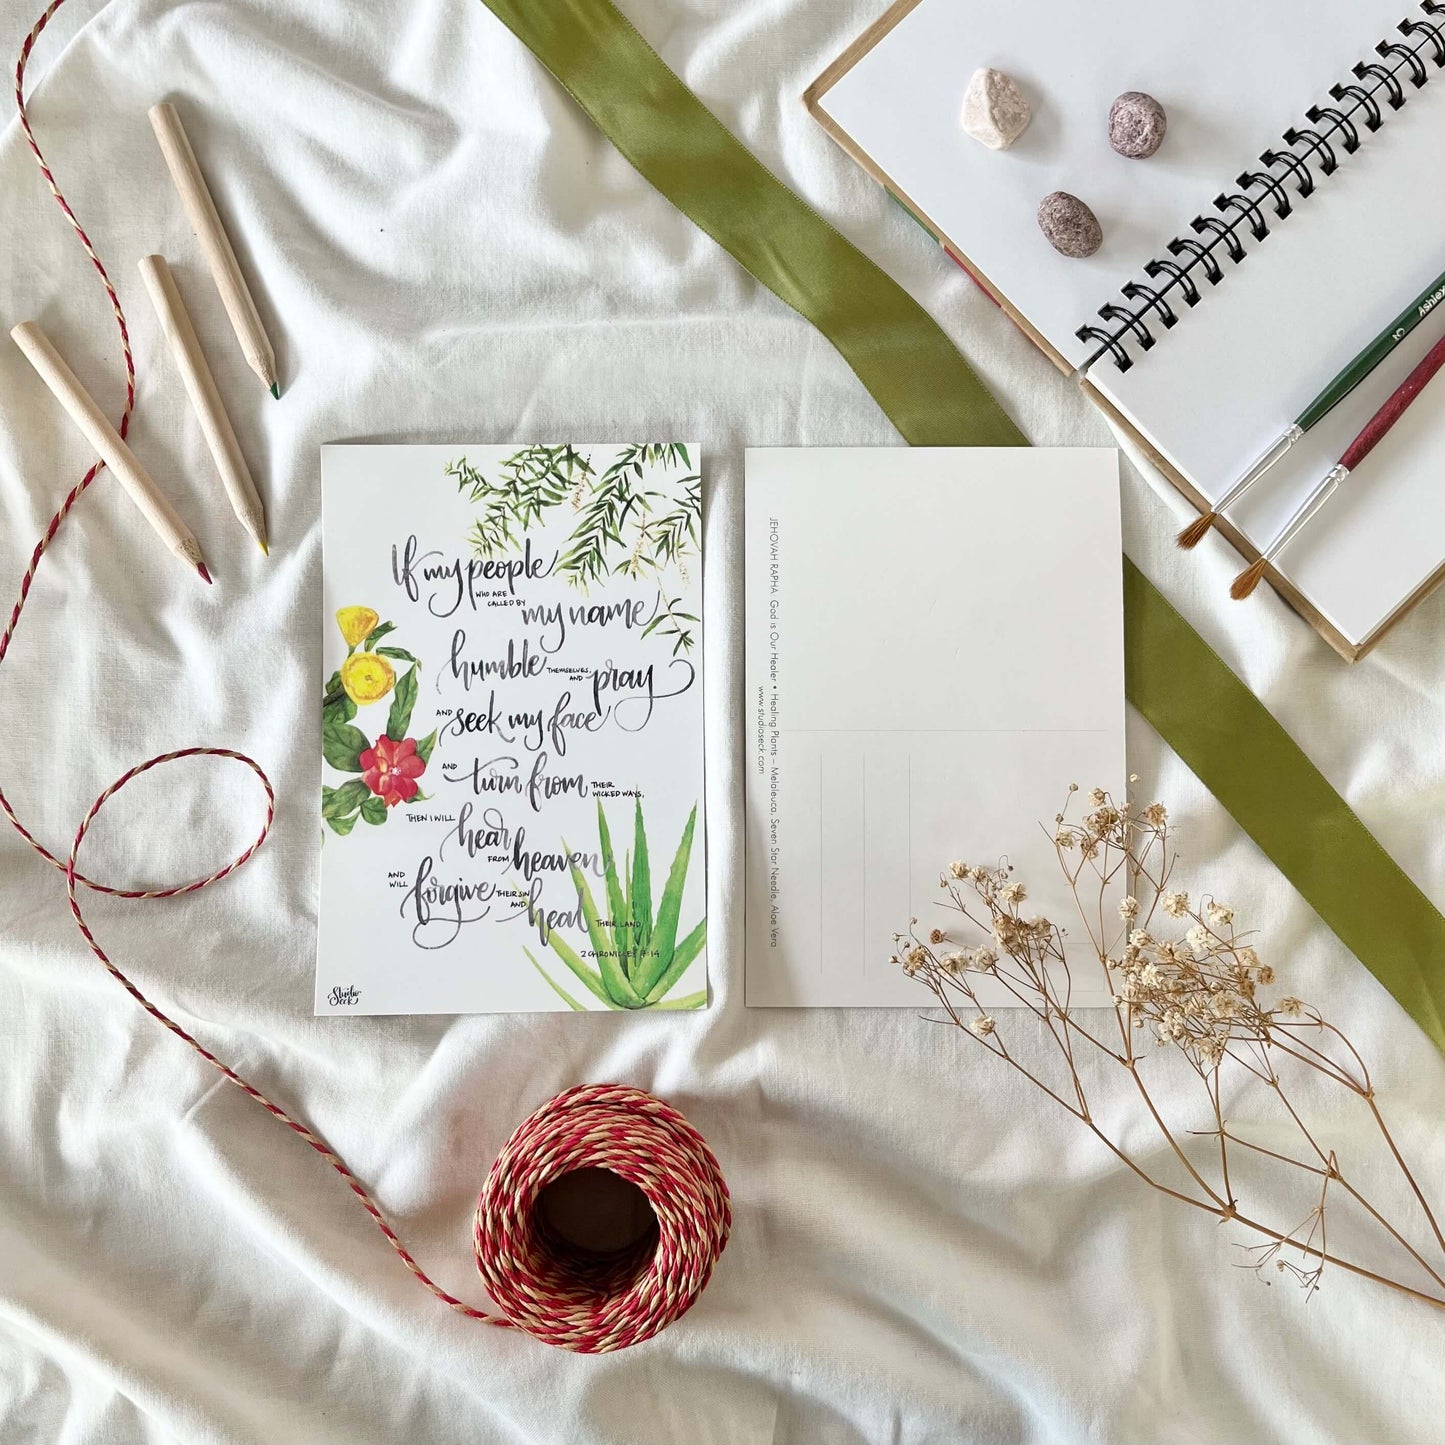 If my people
WHO ARE
CALLED BY
my name
humble THEMSELVES,
AND
pray
AND seek my face
AND turn from THEIR
WICKED WAYS,
THEN I WILL
hear
FROM heaven
AND
WILL
forgive THEIR SIN
AND
heal THEIR LAND
2 CHRONICLES 7:14
Studio
Seck
JEHOVAH RAPHA: God is Our Healer • Healing Plants – Melaleuca, Seven Star Needle, Aloe Vera
www.studioseck.com
2 Ashley